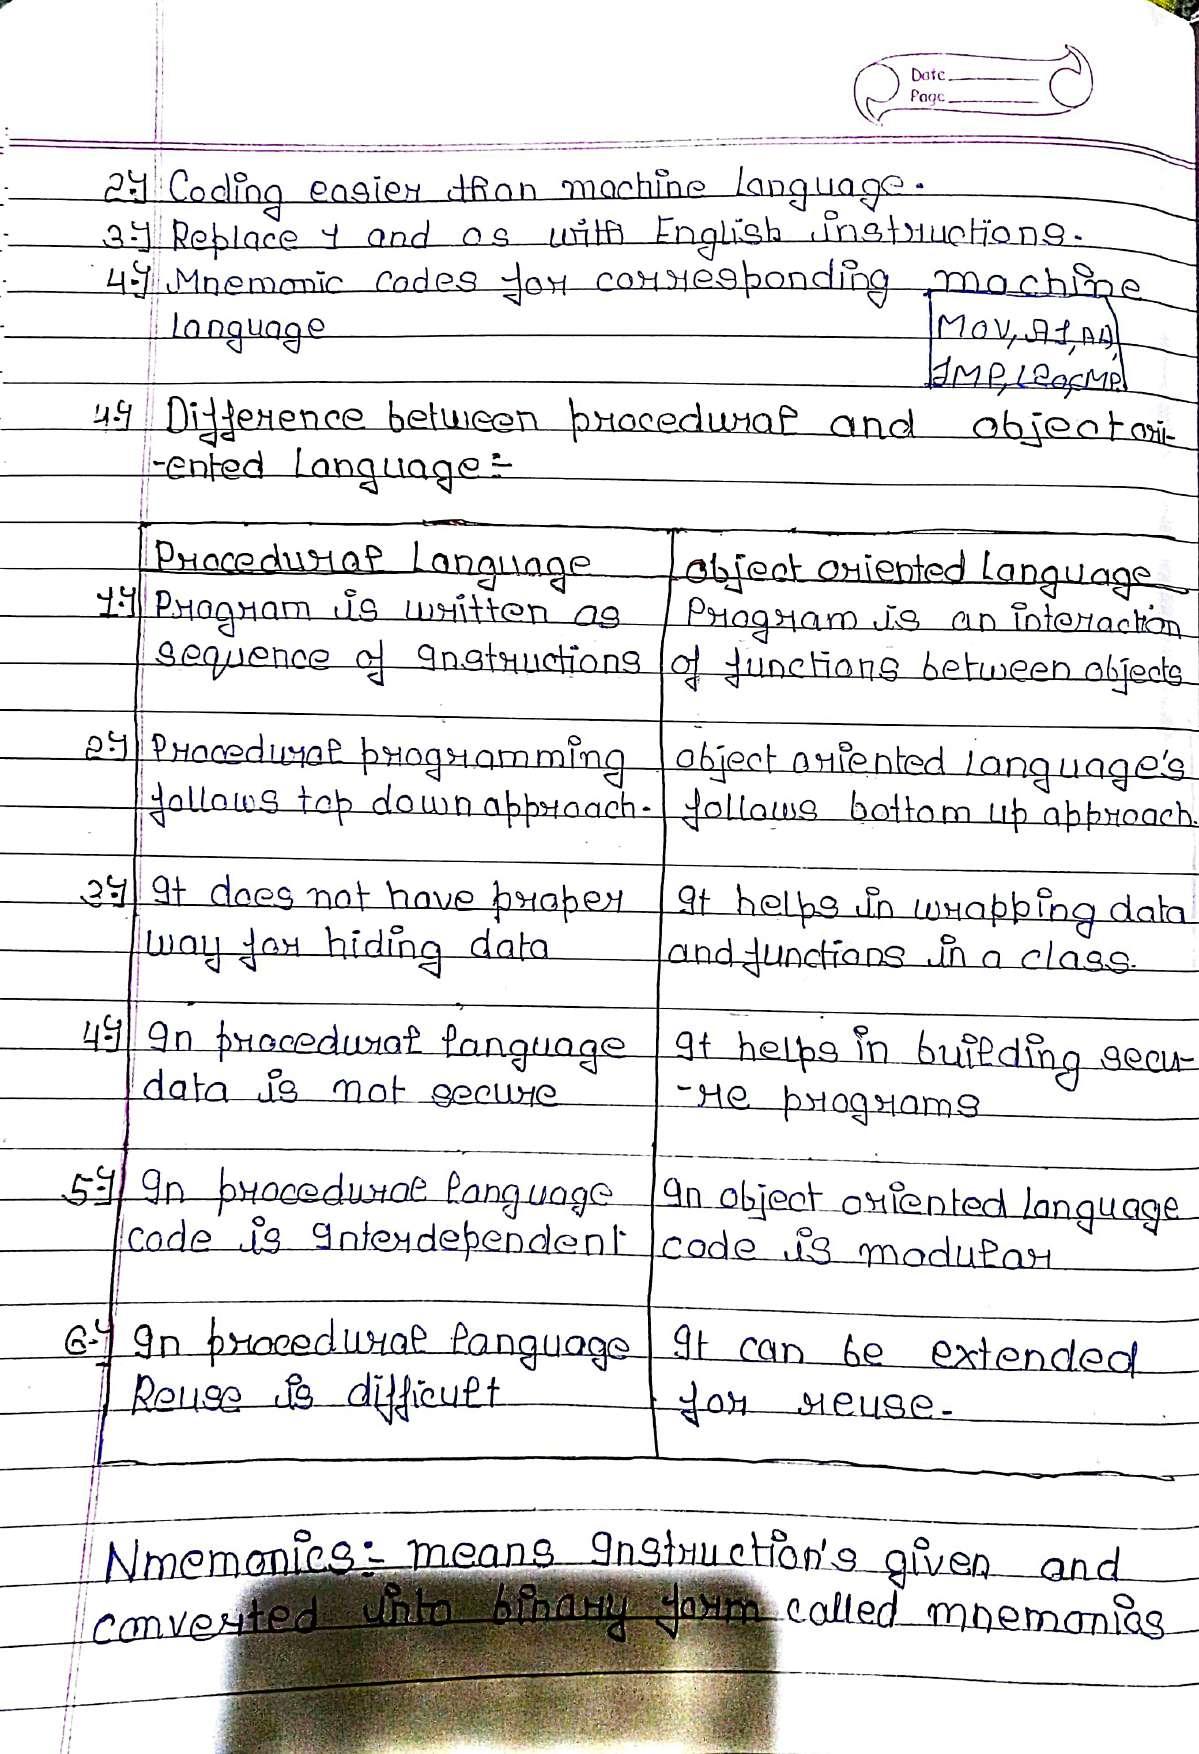 Date
Page
2.) Coding easier than machine language.
3.) Replace 1 and os with English instructions.
4.) Mnemonic codes for corresponding machine
language
MOV,
JMP,
4.) Difference between procedural and object ori-
-ented language:-
Procedural Language
object oriented language
1.) Program is written as
sequence of Instructions
Program is an interaction
of functions between objects
2.) Procedural programming
follows top down approach.
object oriented language's
follows bottom up approach.
3.) It does not have proper
way for hiding data
It helps in wrapping data
and functions in a class.
4.) In procedural language
data is not secure
It helps in building secu-
-re programs
5.) In procedural language
code is Interdependent
In object oriented language
code is modular
6.) In procedural language
Reuse is difficult
It can be extended
for reuse.
Nmemonics:- means Instruction's given and
converted into binary form called mnemonics